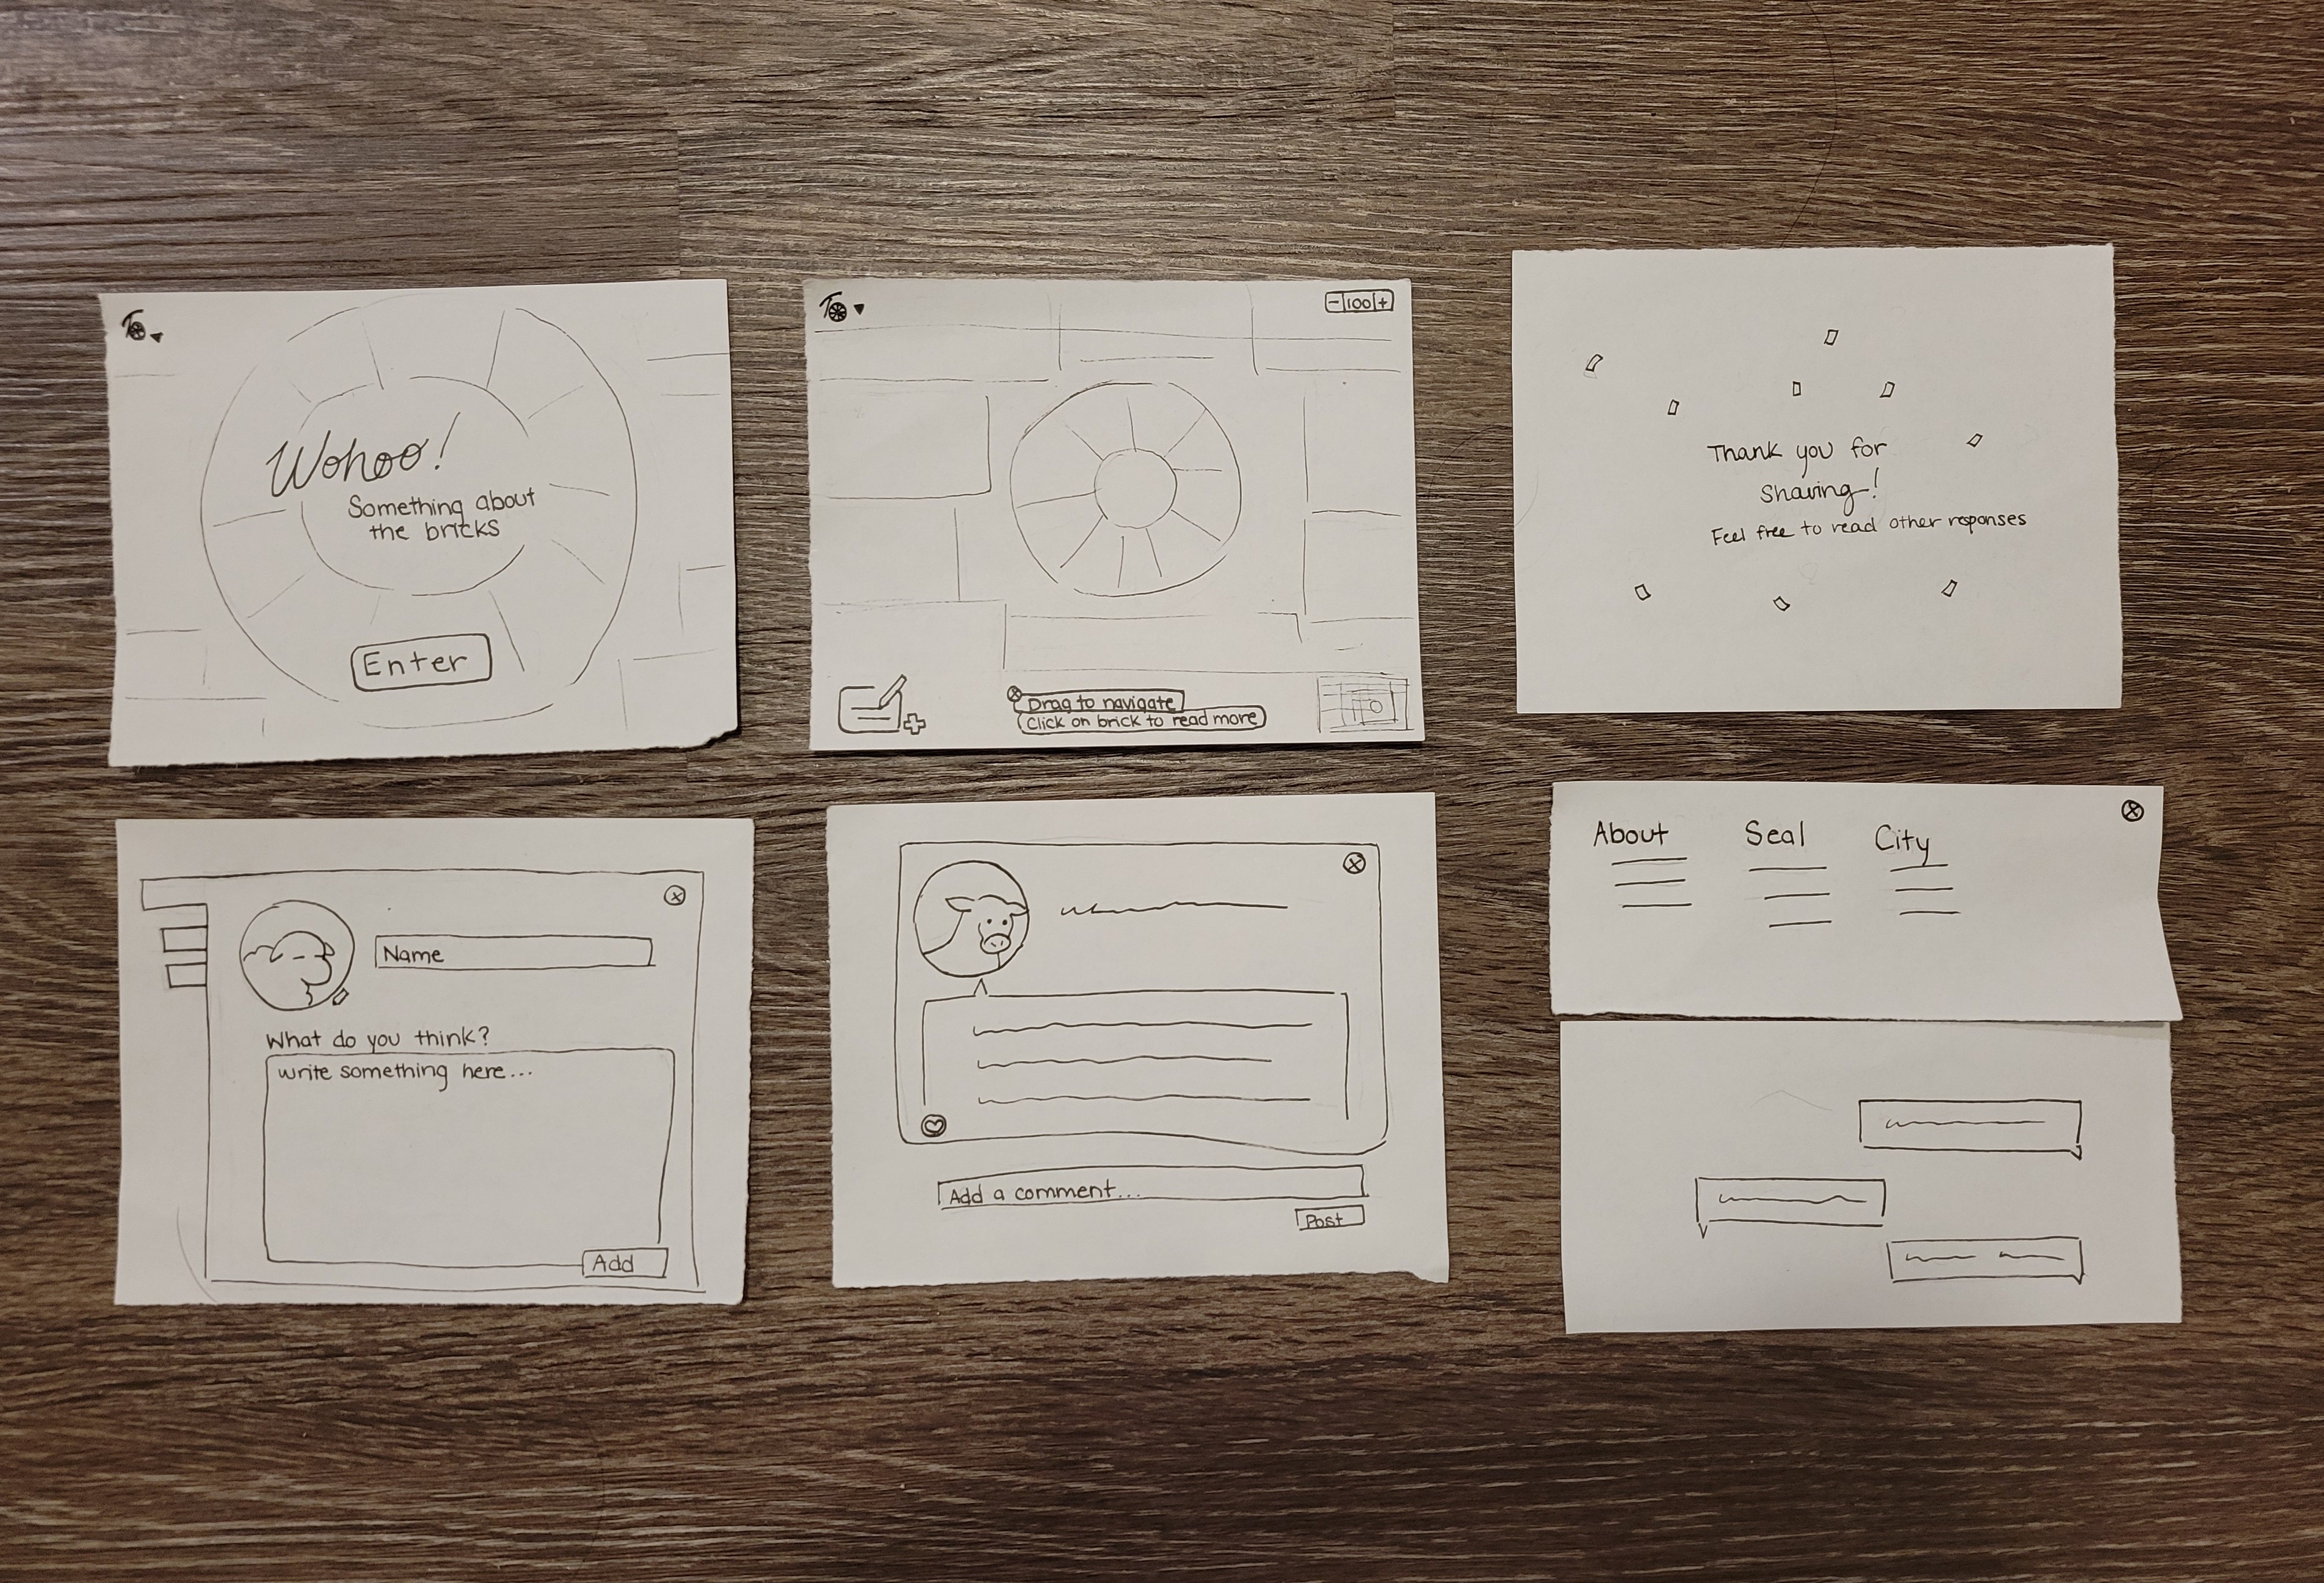 Wohoo!
Something about
the bricks
Enter
- 100 +
Drag to navigate
Click on brick to read more
Thank you for
sharing!
Feel free to read other reponses
Name
What do you think?
write something here...
Add
Add a comment...
Post
About Seal City